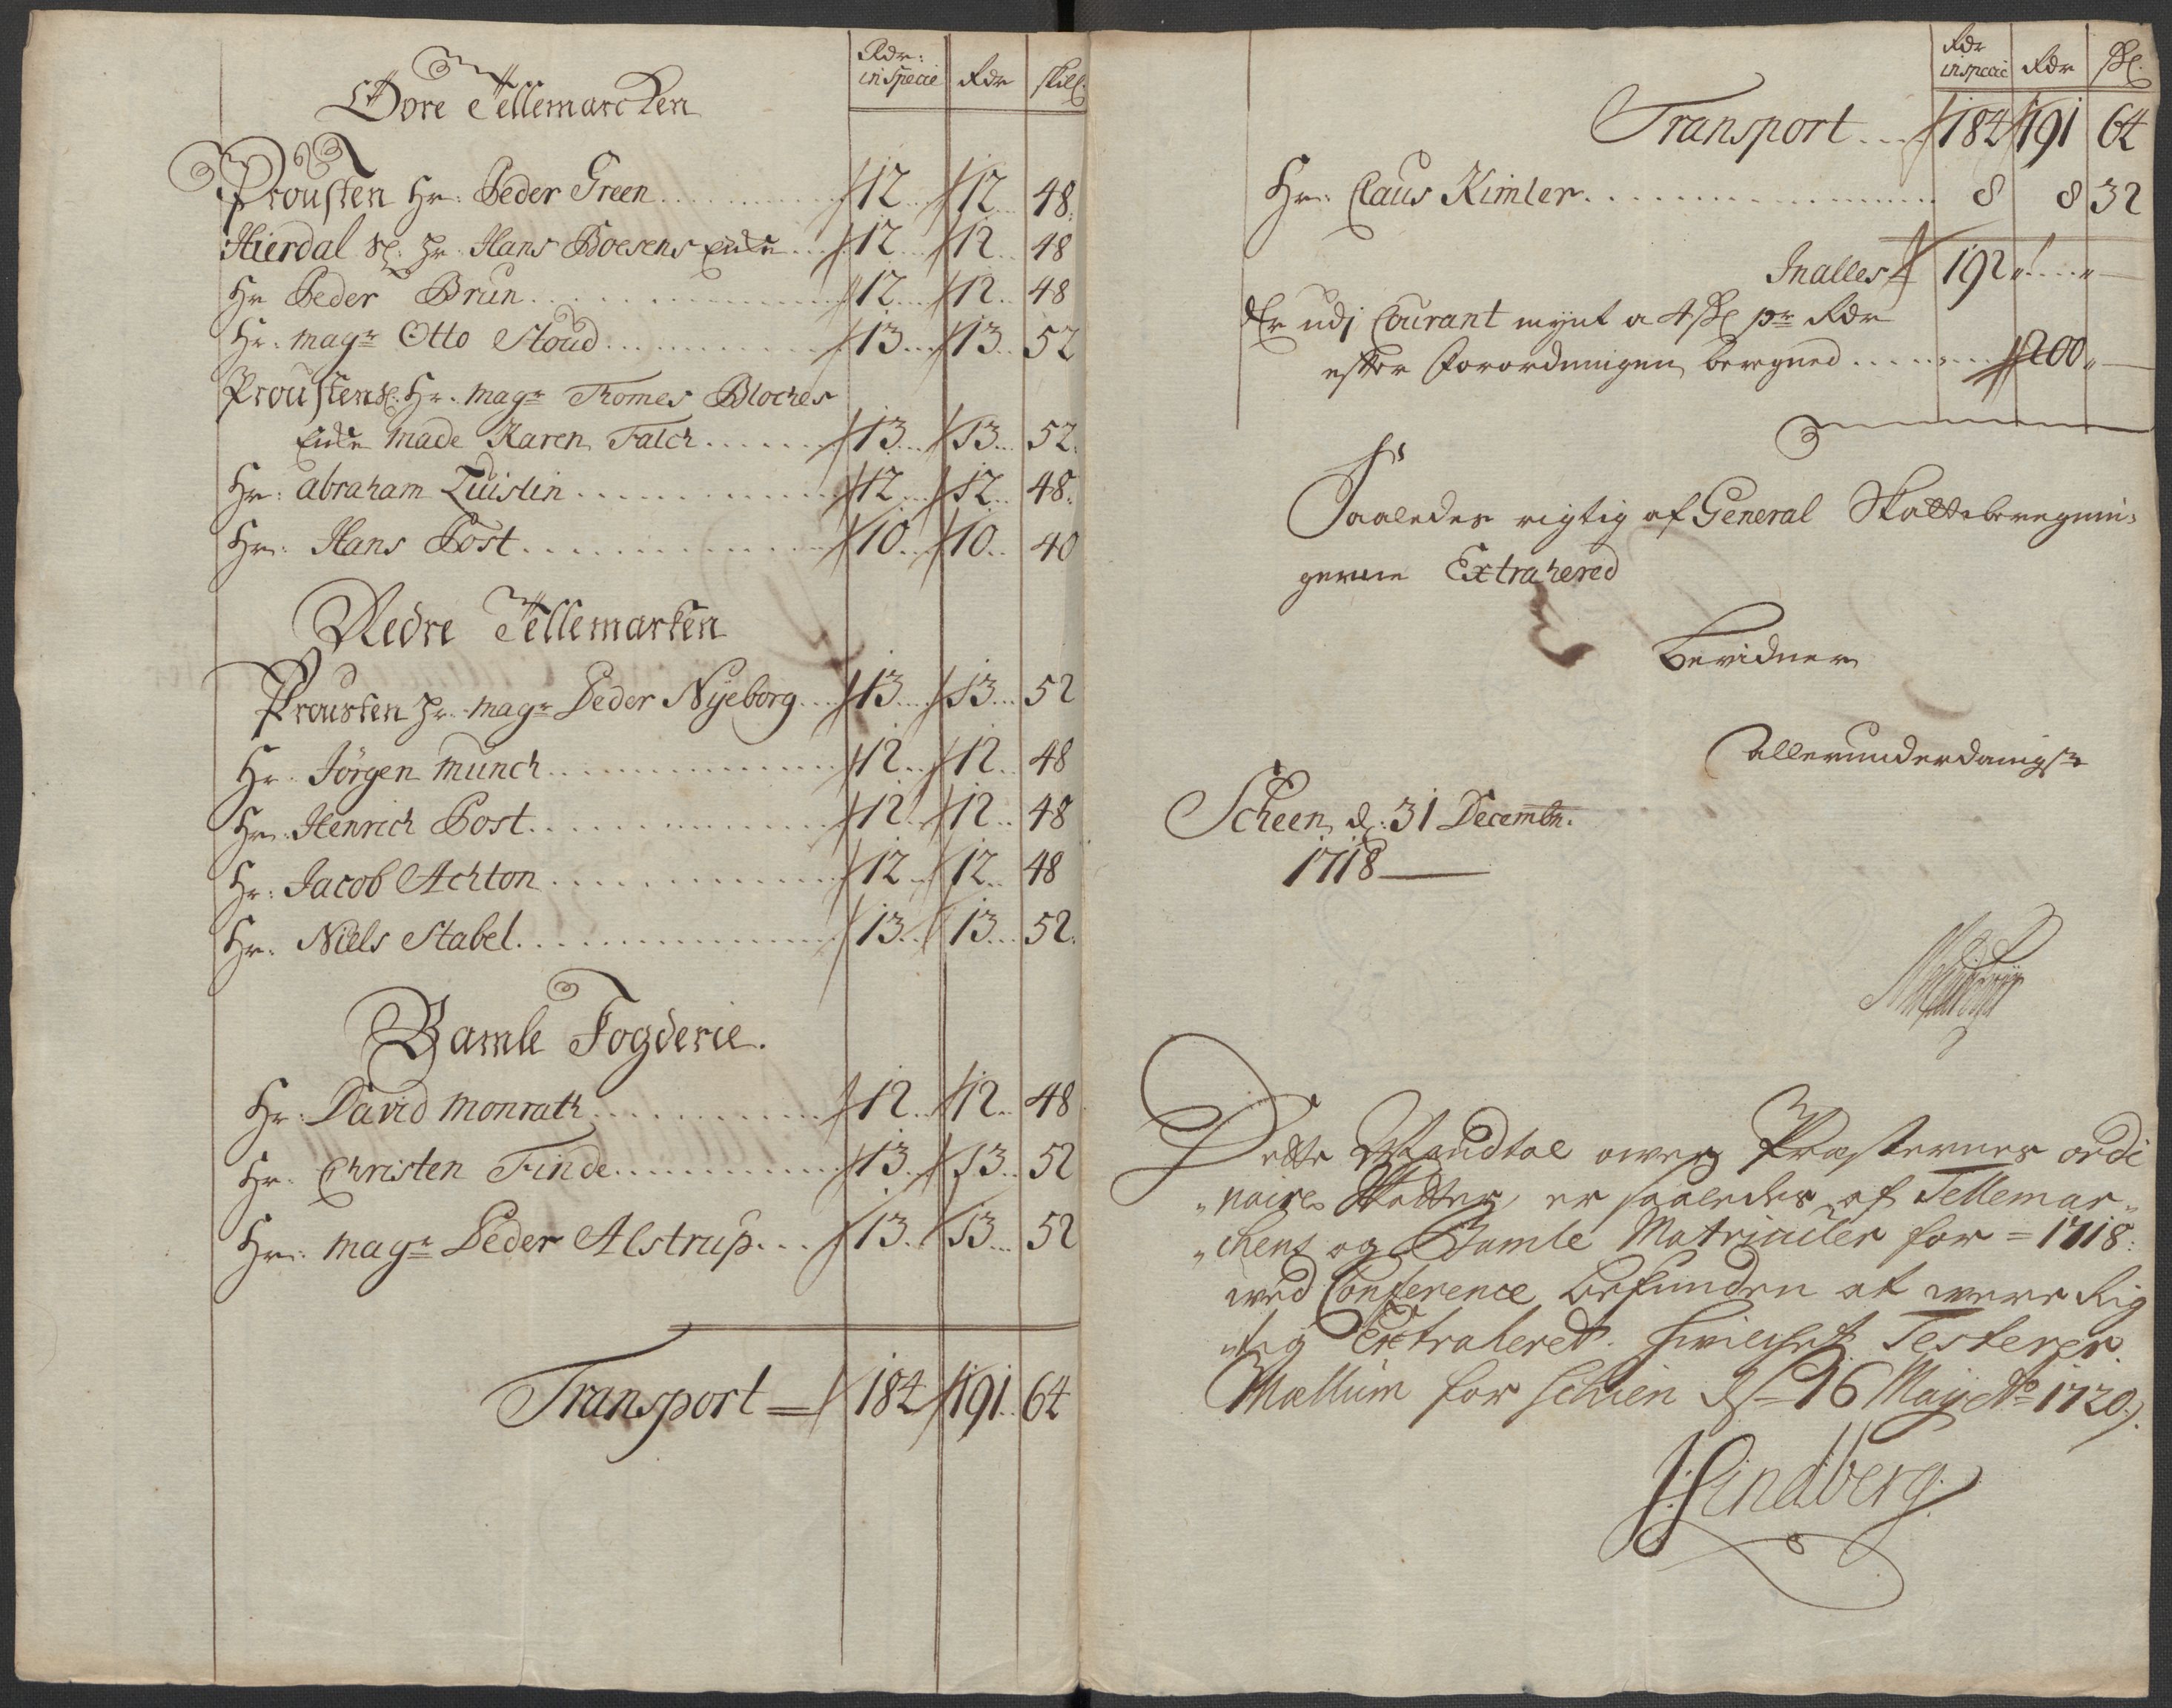 Rdr:
in specie Rdr skill:
Øvre Tellemarcken
Prousten Hr: Peder Green 12 12 48
Hierdal Sl: Hr. Hans Boesens Encke 12 12 48
Hr Peder Brun 12 12 48
Hr. Magr Otto Stoud 13 13 52
Prousten Sl: Hr. Magr Thomes Bloches
Encke Made Karen Falch 13 13 52
Hr: Abraham Quislin 12 12 48
Hr: Hans Post 10 10 40
Nedre Tellemarken
Prousten Hr. Magr Peder Nyeborg 13 13 52
Hr. Jörgen Munch 12 12 48
Hr. Henrich Post 12 12 48
Hr: Jacob Achton 12 12 48
Hr. Niels Stabel 13 13 52
Bamle Fogderie.
Hr: David Monrath 12 12 48
Hr. Christen Finde 13 13 52
Hr: Magr Peder Alstrup 13 13 52
Transport 184 191 64
Rdr
in specie Rdr sk:
Transport 184 191 64
Hr: Claus Kimler 8 8 32
Jnalles 192
Er udj Courant mynt a 4 sk pr Rdr
efter Forordningen beregned 200
Saaledes rigtig af General Skatteberegnin:
gerne Extrahered
Bevidner
Allerunderdanigst
Scheen d: 31 Decembr.
1718
Dette Mandtal over Præsternes ordi
naire Skatter, er saaledes af Tellemar
chens og Bamle Matriculer for 1718:
wed Conference befunden at were Rig
tig Extraheret. hvilchet Testerer.
Mællum for Schien d 16 Maij Ao 1720.
Lindberg